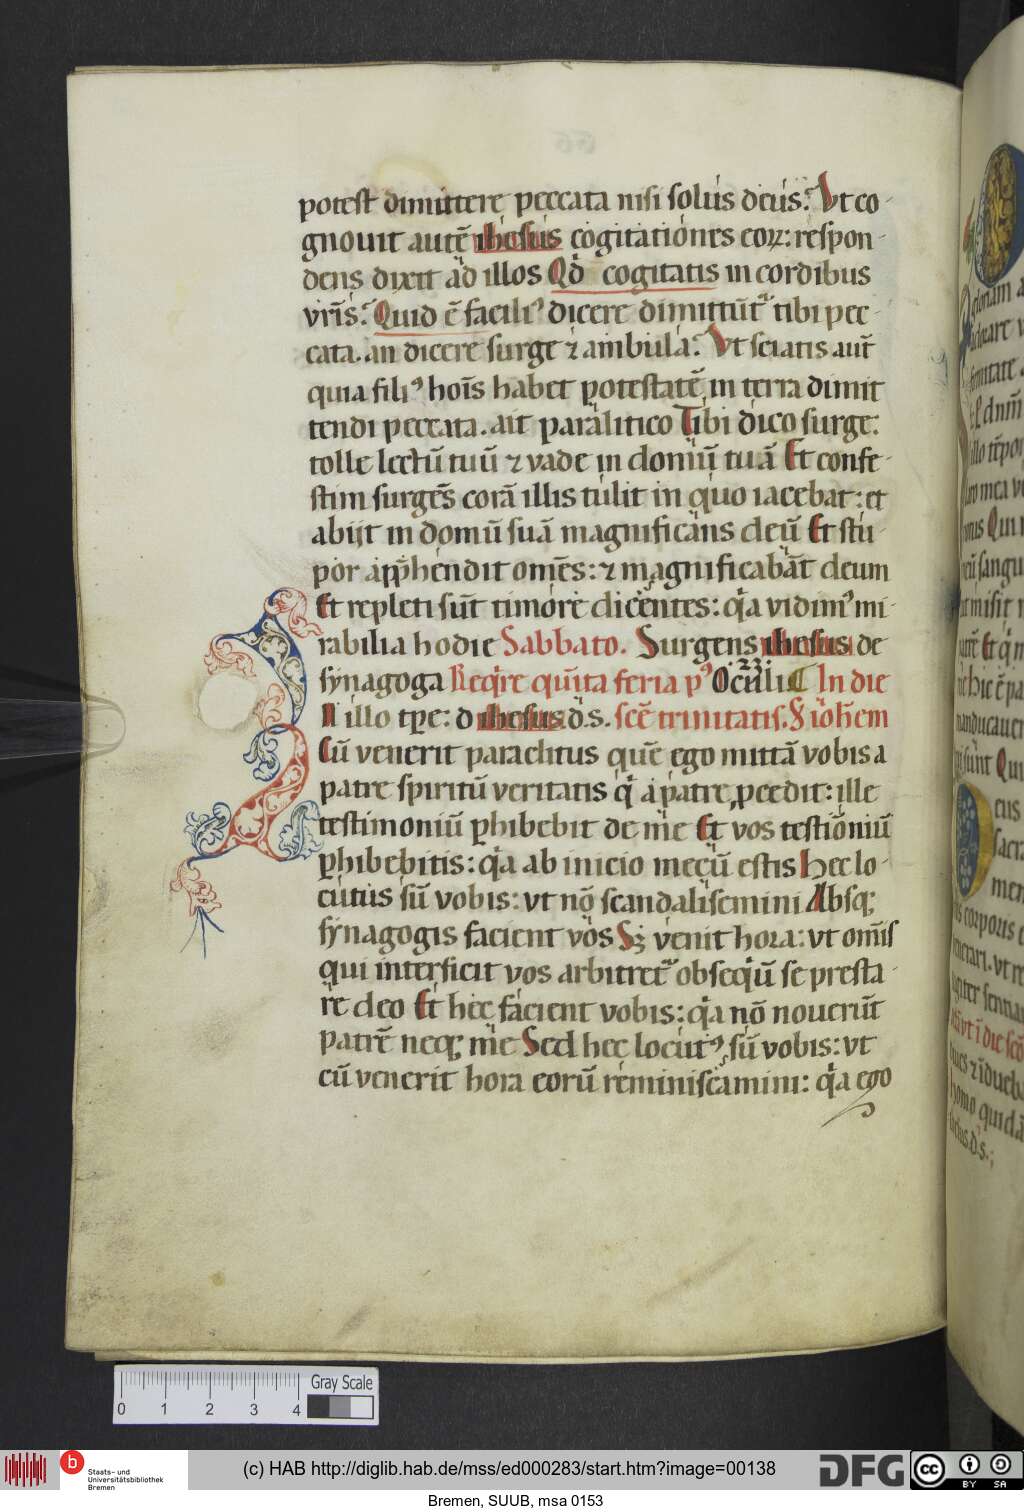 potest dimittere peccata nisi solus deus? Vt co-
gnouit autē ihesus cogitationes eoꝝ: respon-
dens dixit ad illos Qđ cogitatis in cordibus
vr̄is? Quid ē faciliꝰ dicere dimittūt᷑ tibi pec-
cata. an dicere surge ⁊ ambula? Vt sciatis aut̄
quia filiꝰ hoīs habet potestatē in terra dimit
tendi peccata. ait paralitico Tibi dico surge:
tolle lectū tuū ⁊ vade in domū tuā Et confe-
stim surgēs corā illis tulit in quo iacebat: et
abijt in domū suā magnificans deū Et stu-
por app̄hendit omēs: ⁊ magnificabāt deum
Et repleti sūt timore dicentes: qͥa vidimꝰ mi-
rabilia hodie Sabbato. Surgens ihesus de
synagoga Req̄re qūita feria pꝰ Oculi In die
N illo tp̄e: d ihesus d. s. scē trinitatis. S ioh̄em
Cū venerit paraclitus quē ego mittā vobis a
patre spiritū veritatis qͥ a patre ꝓcedit: ille
testimoniū ꝑhibebit de me Et vos testiōniū
ꝑhibebitis: qͥa ab inicio mecū estis Hec lo-
cutus sū vobis: vt nō scandalisemini Absqꝫ
synagogis facient vos Sꝫ venit hora: vt omīs
qui interficit vos arbitret᷑ obseqͥū se presta-
re deo Et hec facient vobis: qͥa nō nouerūt
patrē neqꝫ me Sed hec locutꝰ sū vobis: vt
cū venerit hora eorū reminiscamini: qͥa ego
0 1 2 3 4 Gray Scale
b Staats- und
Universitätsbibliothek
Bremen
(c) HAB http://diglib.hab.de/mss/ed000283/start.htm?image=00138
DFG
cc BY SA
Bremen, SUUB, msa 0153